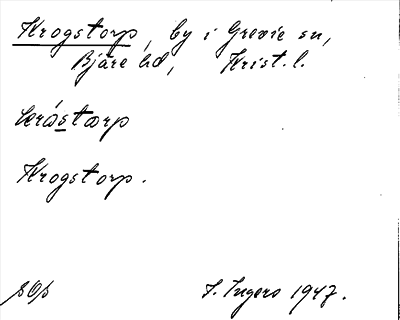 Krogstorp, by i Grevie sn,
Bjäre hd, Krist. l.
kråstorp
Krogstorp.
SOp J. Ingers 1947.